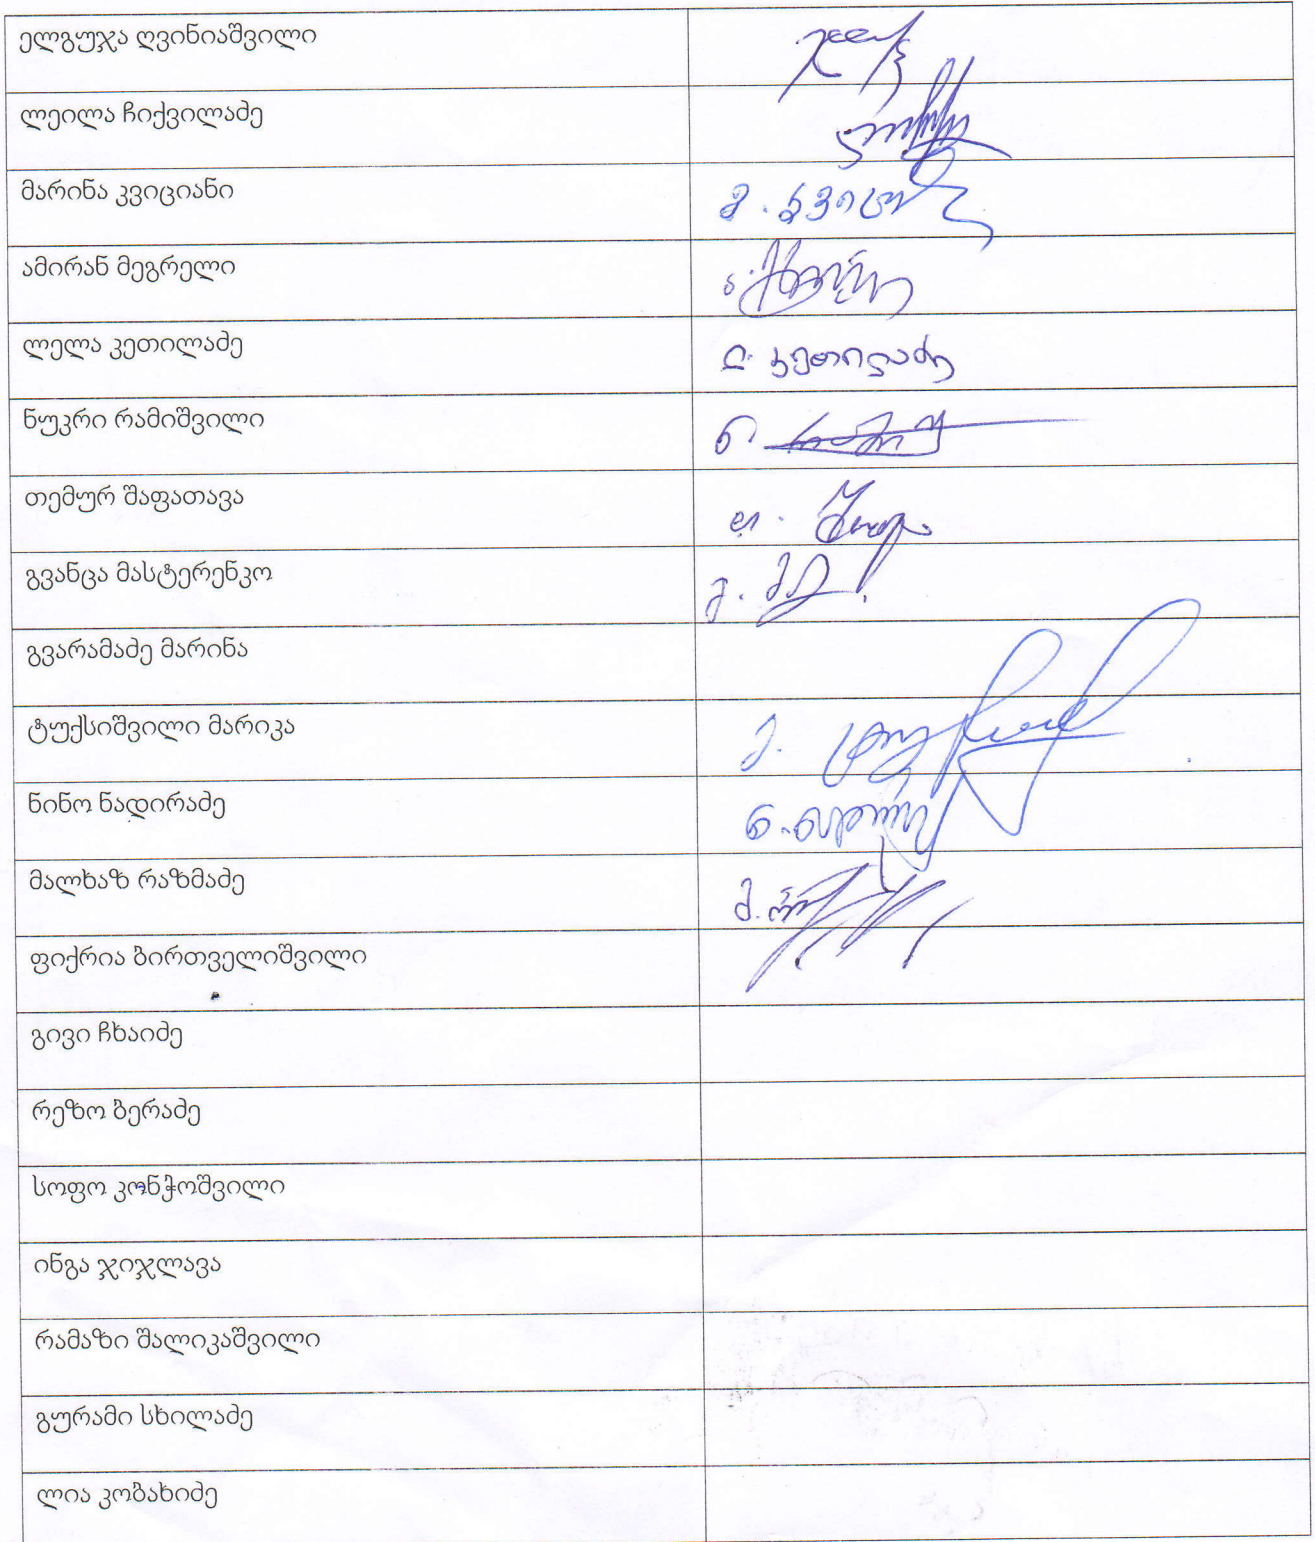 ელგუჯა ღვინიაშვილი
ლეილა ჩიქვილაძე
მარინა კვიციანი მ. კვიცი
ამირან მეგრელი ა.
ლელა კეთილაძე ლ. კეთილაძე
ნუკრი რამიშვილი ნ.
თემურ შაფათავა თ.
გვანცა მასტერენკო გ.
გვარამაძე მარინა
ტუქსიშვილი მარიკა მ.
ნინო ნადირაძე ნ.
მალხაზ რაზმაძე მ.
ფიქრია ბირთველიშვილი
გივი ჩხაიძე
რეზო ბერაძე
სოფო კონჭოშვილი
ინგა ჯიჯლავა
რამაზი შალიკაშვილი
გურამი სხილაძე
ლია კობახიძე